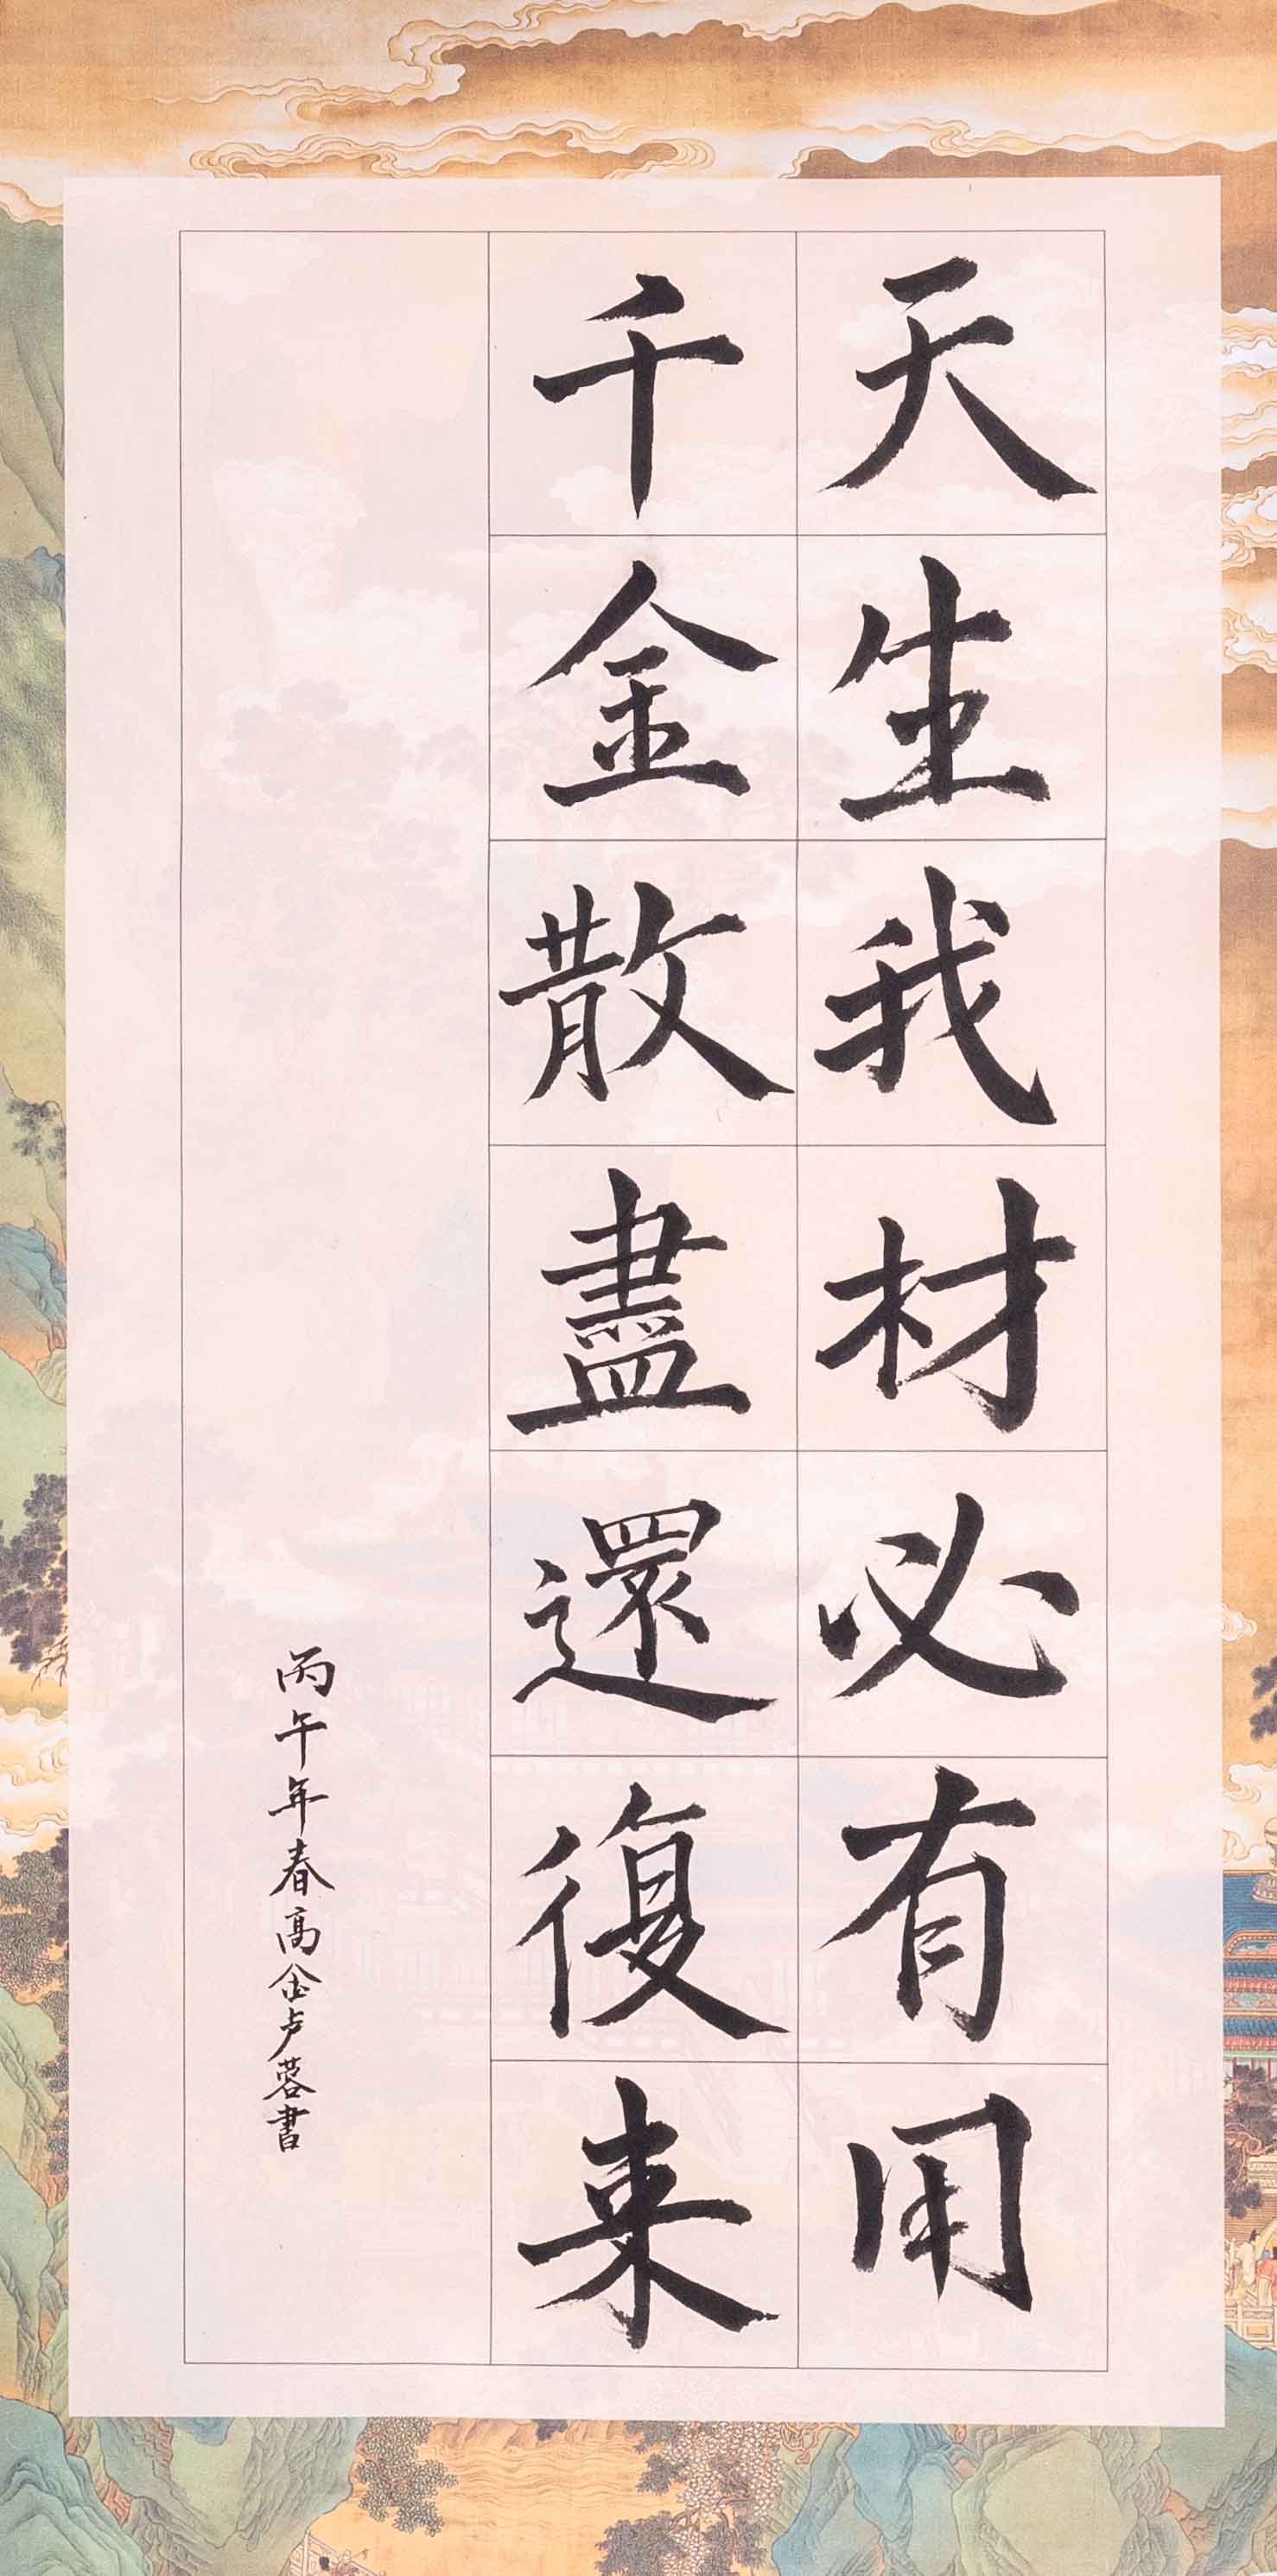 天生我材必有用
千金散盡還復来
丙午年春高金卢蓉書